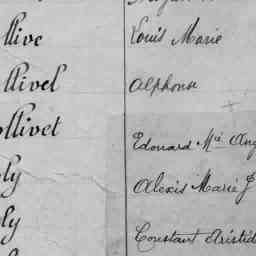 llive Louis Marie
llivel Alphonse
ollivet Edouard Mie Ang
ly Alexis Marie J
ly Constant Aristid